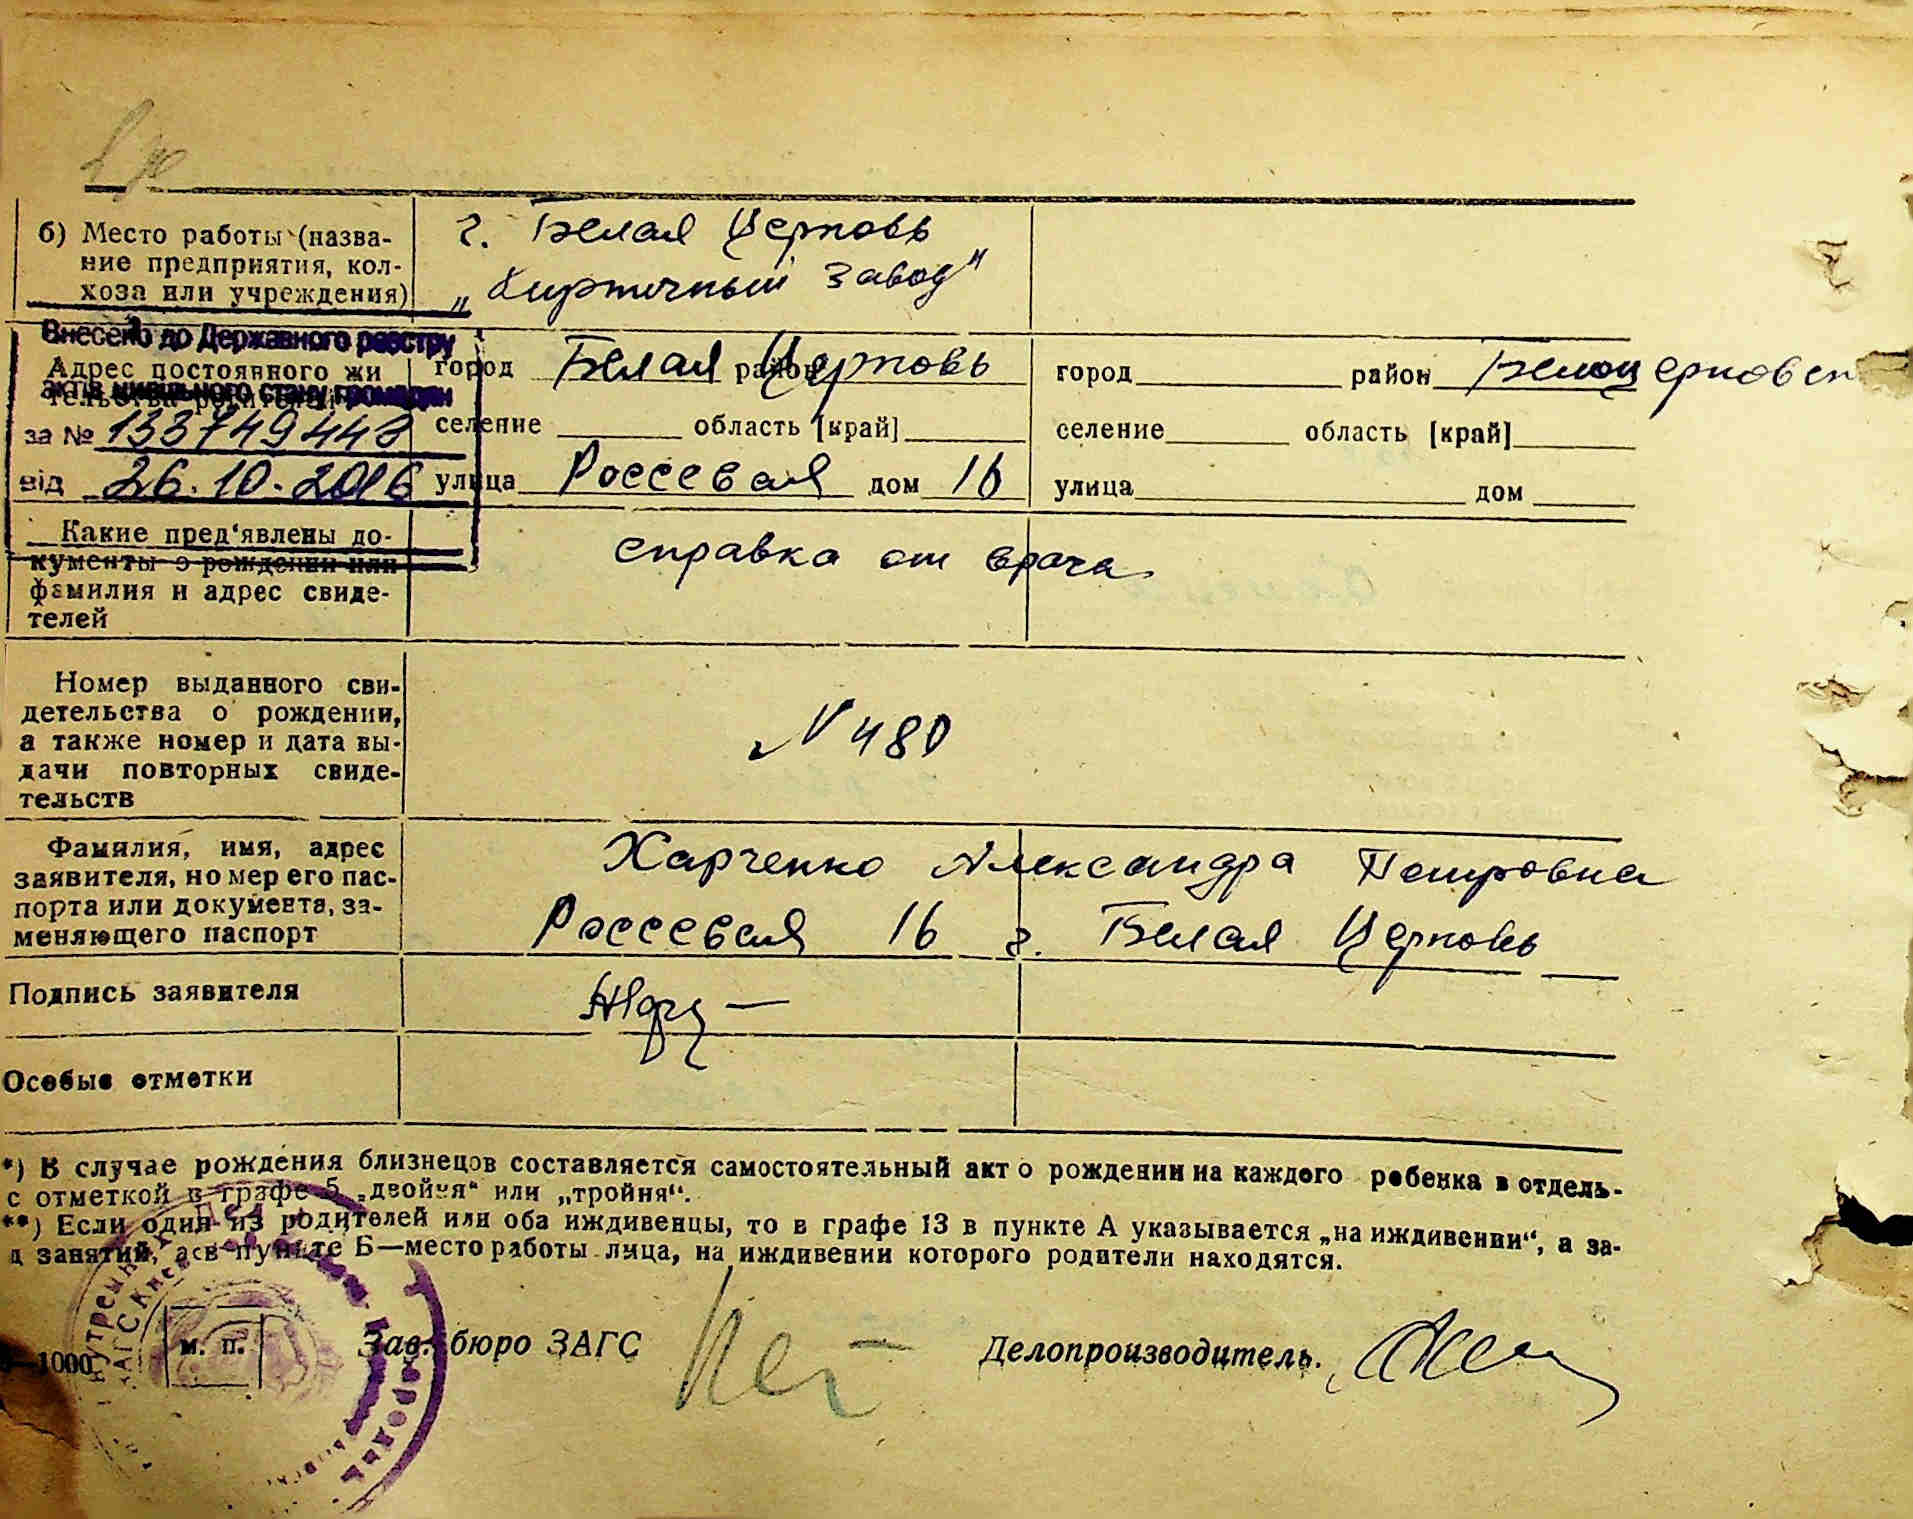 б) Место работы (назва-
ние предприятия, кол-
хоза или учреждения)
г. Белая Церковь
„Кирпичный завод"
Внесено до Державного реєстру
актів цивільного стану громадян
за № 133749448
від 26.10.2016
Адрес постоянного жи
тельства родителей
город Белая Церковь район
селение область [край]
улица Россевая дом 16
город район Белоцерковск
селение область [край]
улица дом
Какие пред‘явлены до-
кументы о рождении или
фамилия и адрес свиде-
телей
справка от врача
Номер выданного сви-
детельства о рождении,
а также номер и дата вы-
дачи повторных свиде-
тельств
N 480
Фамилия, имя, адрес
заявителя, номер его пас-
порта или документа, за-
меняющего паспорт
Харченко Александра Петровна
Россевая 16 г. Белая Церковь
Подпись заявителя
Особые отметки
*) В случае рождения близнецов составляется самостоятельный акт о рождении на каждого ребенка в отдель-
с отметкой в графе 5 „двойня“ или „тройня“.
**) Если один из родителей или оба иждивенцы, то в графе 13 в пункте А указывается „на иждивении“, а за-
д занятий, а в пункте Б—место работы лица, на иждивении которого родители находятся.
м. п.
Зав. бюро ЗАГС
Делопроизводитель.
—1000